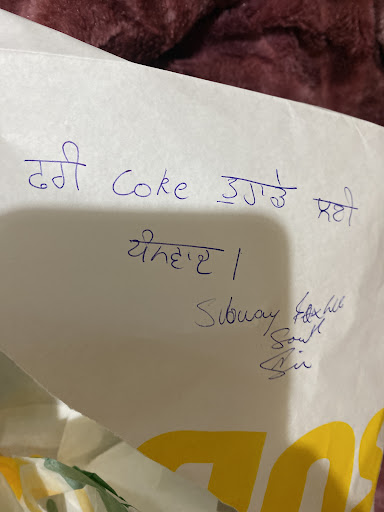 ਫਰੀ Coke ਤੁਹਾਡੇ ਲਈ
ਧੰਨਵਾਦ।
Subway
South